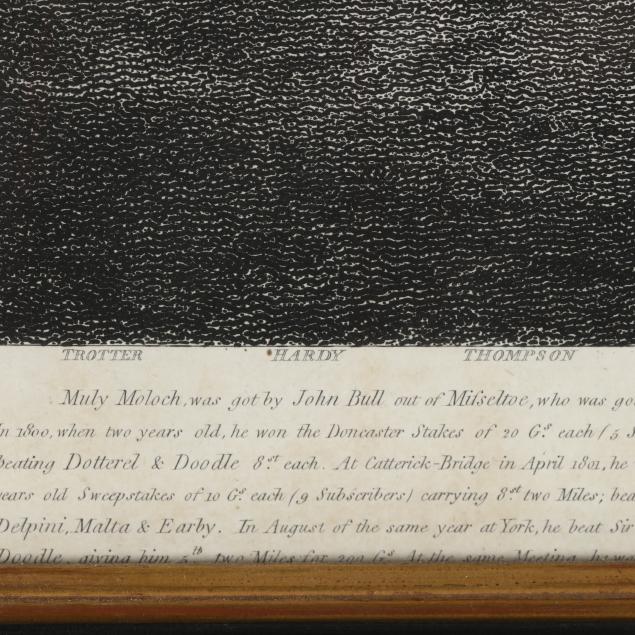 TROTTER HARDY THOMPSON
Muly Moloch, was got by John Bull out of Miſseltoe, who was go
In 1800, when two years old, he won the Doncaster Stakes of 20 Gs each (5 S
beating Dotterel & Doodle 8st each. At Catterick-Bridge in April 1801, he
years old Sweepstakes of 10 Gs each (9 Subscribers) carrying 8st two Miles; bea
Delpini, Malta & Earby. In August of the same year at York, he beat Sir
Doodle, giving him 5th two Miles for 200 Gs At the same Meeting he w